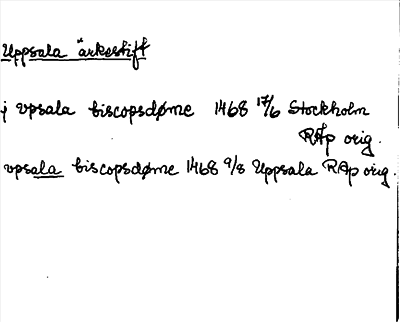 Uppsala ärkestift
j vpsala biscopsdøme 1468 17/6 Stockholm
RAp orig.
vpsala biscopsdøme 1468 9/8 Uppsala RAp orig.